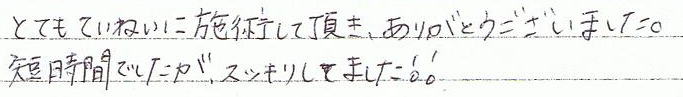 とてもていねいに施術して頂き、ありがとうございました。
短時間でしたが、スッキリしてました!!